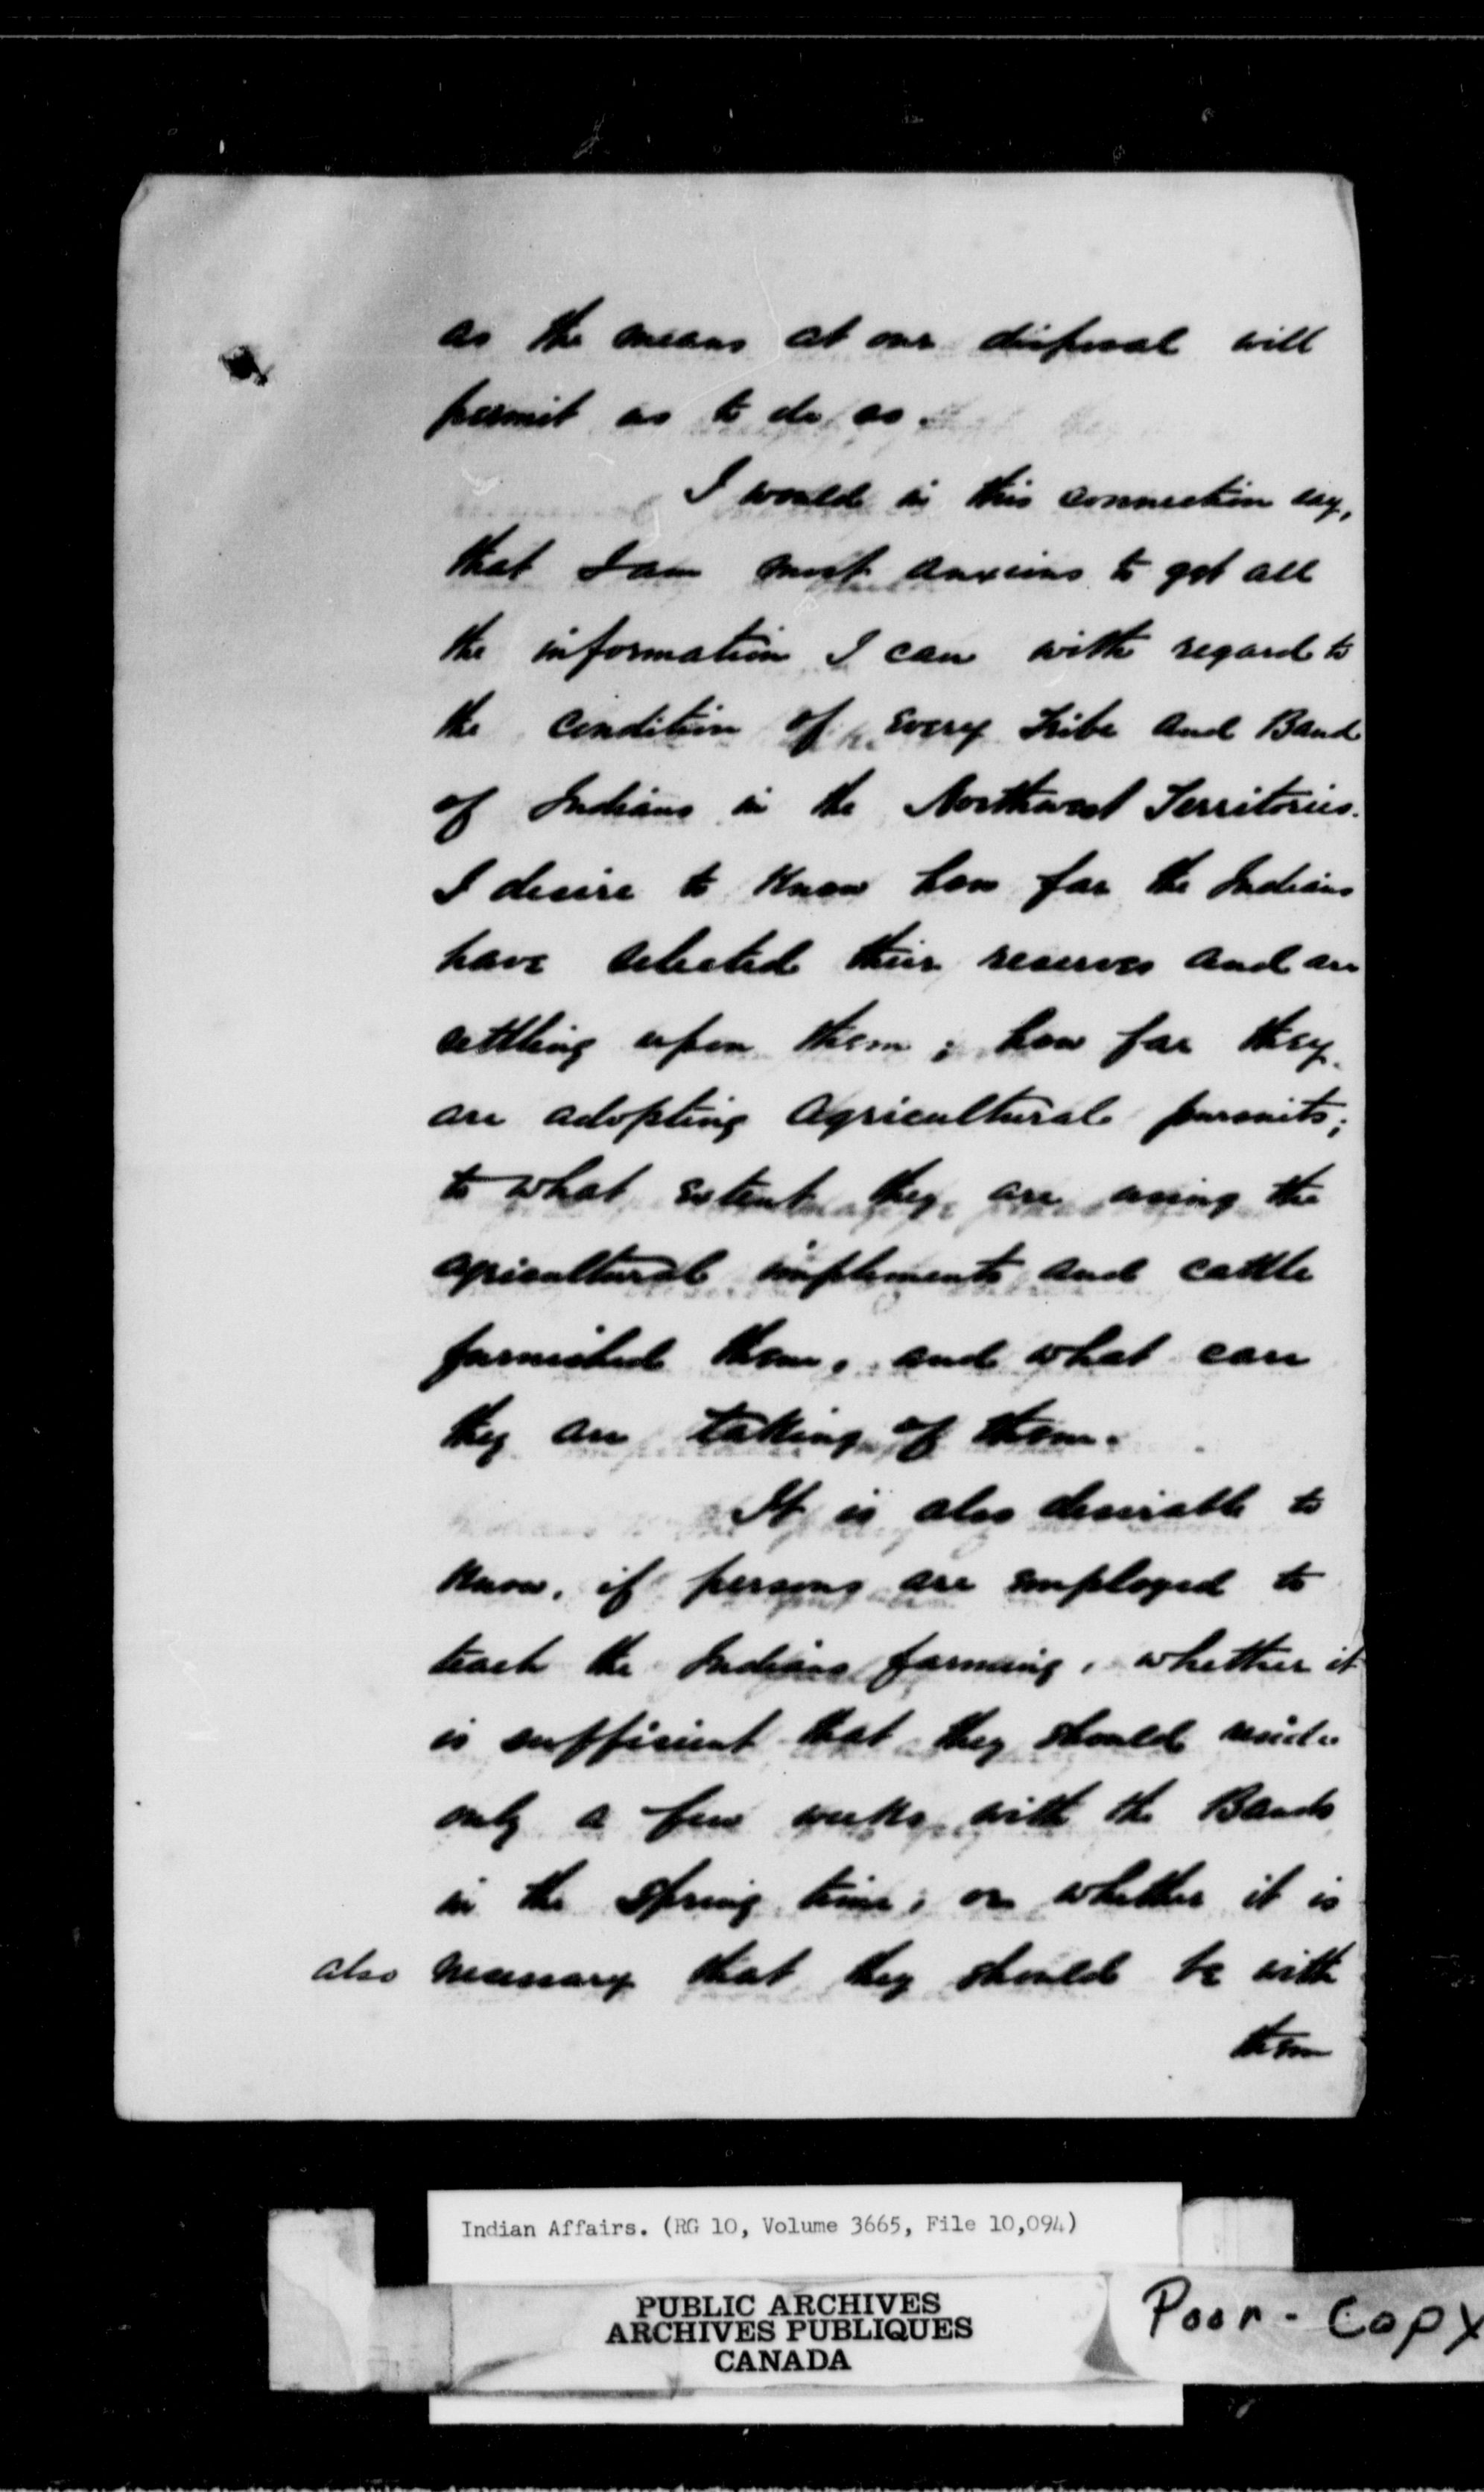 as the means at our disposal will
permit us to do so.
I would in this connection say,
that I am most anxious to get all
the information I can with regard to
the condition of every Tribe and Band
of Indians in the Northwest Territories.
I desire to know how far the Indians
have selected their reserves and are
settling upon them; how far they
are adopting agricultural pursuits;
to what extent they are using the
agricultural implements and cattle
furnished them, and what care
they are taking of them.
It is also desirable to
know, if persons are employed to
teach the Indians farming, whether it
is sufficient that they should reside
only a few weeks with the Bands
in the Spring time; or whether it is
also necessary that they should be with
them
Indian Affairs. (RG 10, Volume 3665, File 10,094)
PUBLIC ARCHIVES
ARCHIVES PUBLIQUES
CANADA
Poor-Copy